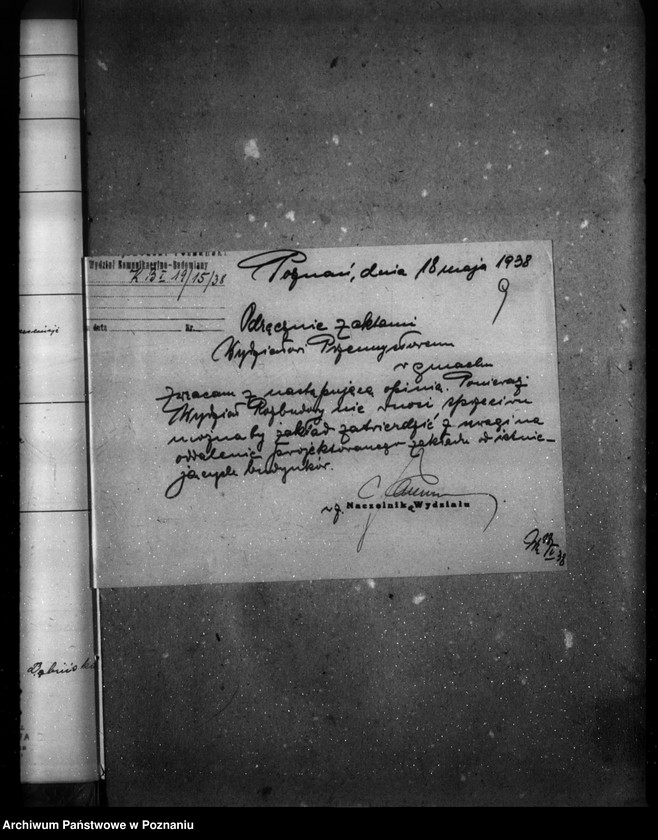 Wydział Komunikacyjno-Budowlany
K B I 19/15/38
Poznań, dnia 18 maja 1938
9
data Nr.
Odręcznie z aktami
Wydziałowi Przemysłowemu
w gmachu
zwracam z następującą opinią. Ponieważ
Wydział Rozbudowy nie wnosi sprzeciwu
można by zakład zatwierdzić z uwagi na
oddalenie projektowanego zakładu od istnie-
jących budynków.
Naczelnik Wydziału
Archiwum Państwowe w Poznaniu